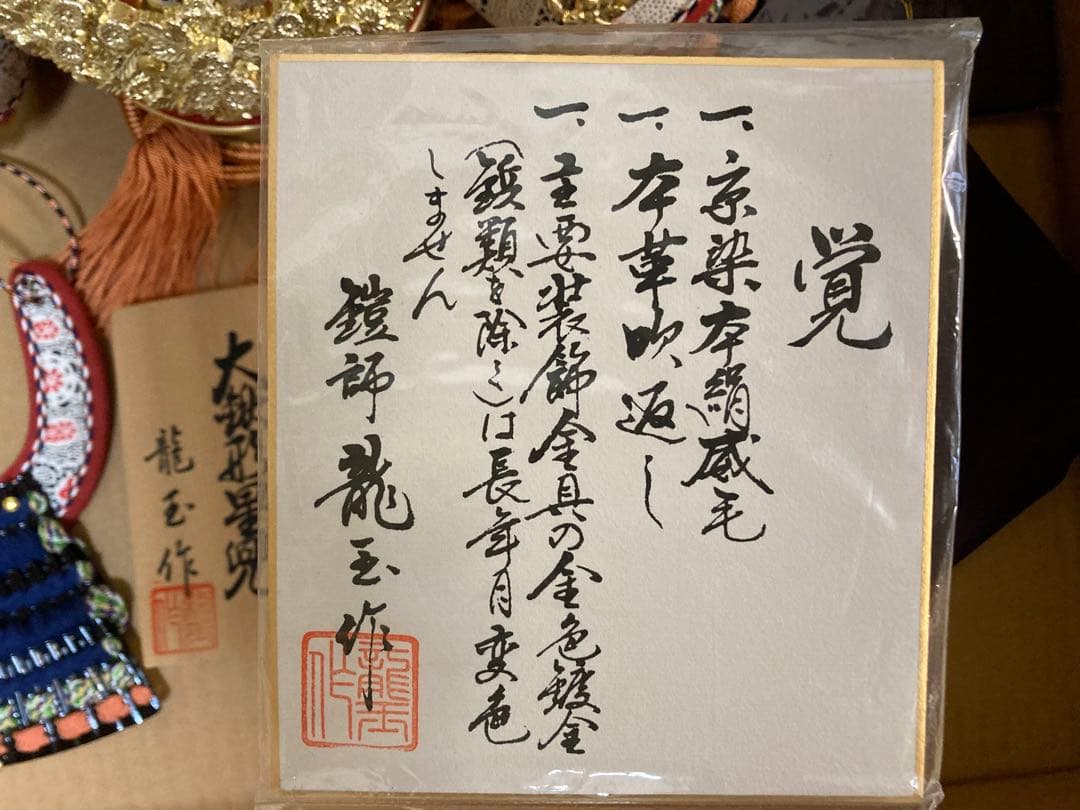 覚
一、京染本絹威毛
一、本革吹返し
一、主要装飾金具の金色鍍金
(鋲類を除く)は長年月変色
しません
鎧師 龍玉作
龍玉作
大鍬形星兜
龍玉作